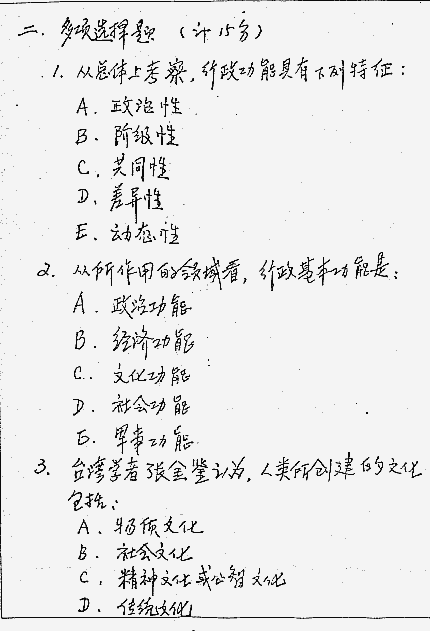 二. 多项选择题 (计15分)
1. 从总体上考察,行政功能具有下列特征:
A. 政治性
B. 阶级性
C. 共同性
D. 差异性
E. 动态性
2. 从所作用的领域看,行政基本功能是:
A. 政治功能
B. 经济功能
C. 文化功能
D. 社会功能
E. 军事功能
3. 台湾学者张金鉴认为,人类所创建的文化
包括:
A. 物质文化
B. 社会文化
C. 精神文化或心智文化
D. 传统文化